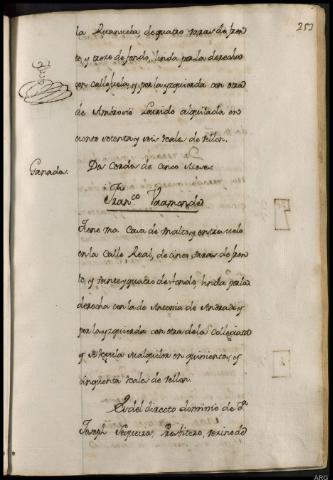 253
la Ruanueba de quatro varas de fren
te, y trece de fondo, linda por la derecha
con calle, y por la yzquierda con otra
de Ambrosio alquilada en
ciento setenta y seis reales de vellon.
Ganado.
Da Cerda de cinco
Franco. Vaamonde
Tiene una Casa de en la Calle Real, de cinco varas de fren
te, y veinte y quatro de fondo, linda por la
derecha con la de Antonia de Andrade, y
por la yzquierda con otra de la Collegiata
y en quinientos, y
cinquenta reales de vellon.
Es del directo dominio de Dn.
Joseph Presvitero, vezino de
ARG